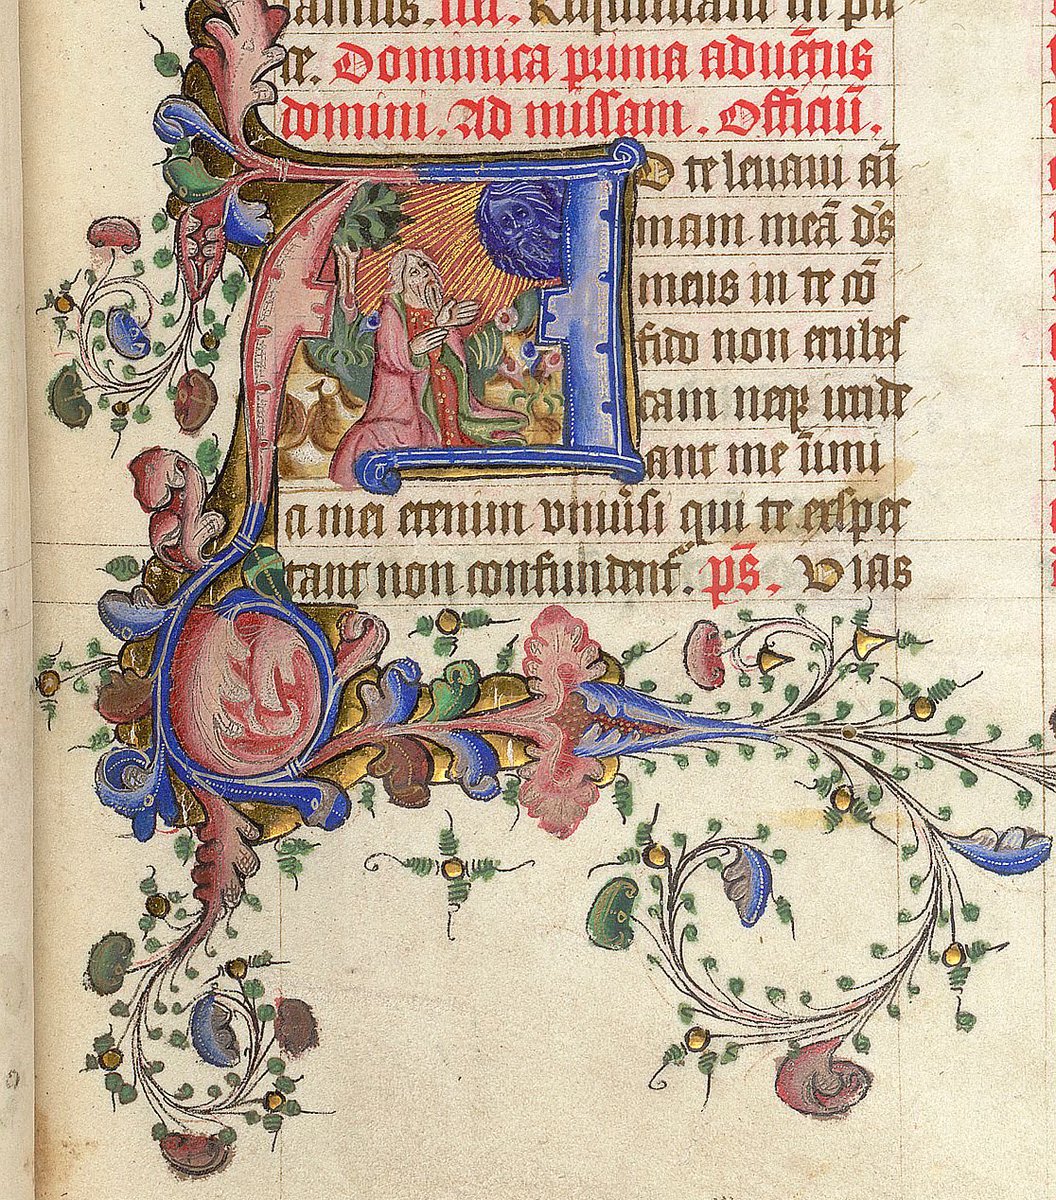 Requiescant in pa
ce. Dominica prima adue̅tus
domini. Ad missam. Officiu̅.
AD te leuaui a̅i
mam mea̅ d̅s
meus in te co̅
fido non erubes
cam neqꝫ irride
ant me i̅imi
ci mei etenim vniu͛si qui te exspec
tant non confundent͛. ps̅. Vias